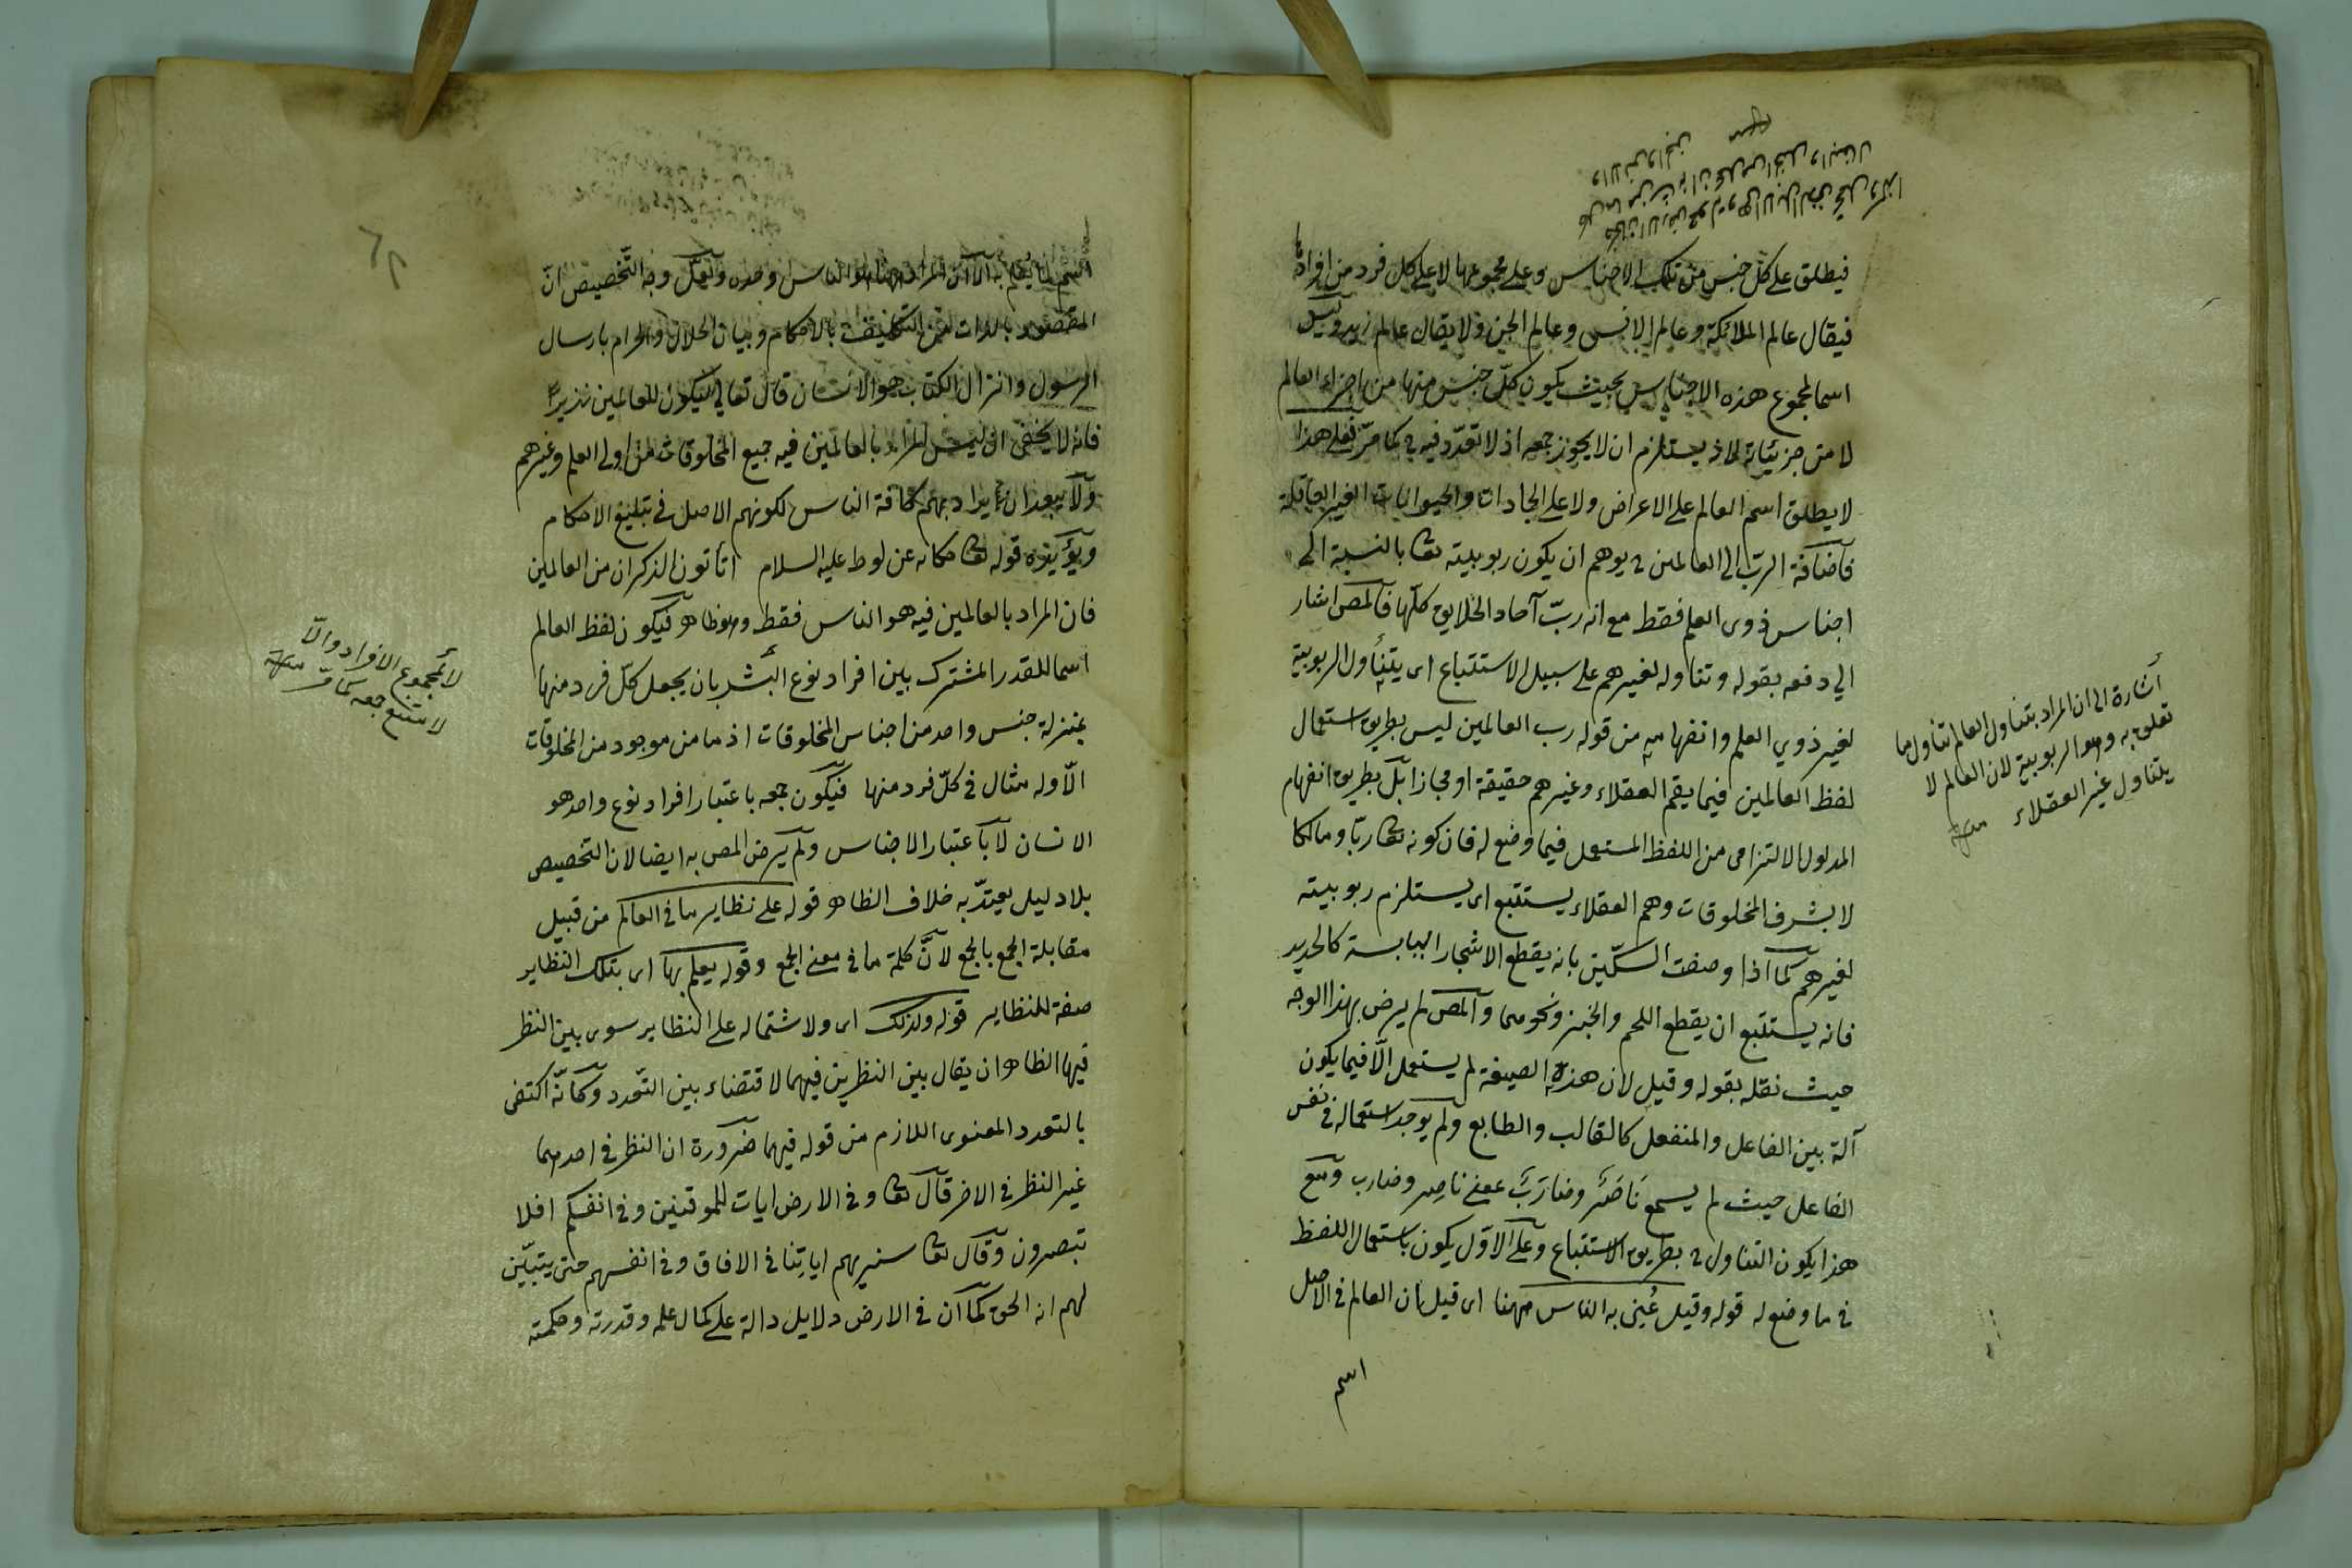 فيطلق على كل جنس من تلك الاجناس وعلى مجموعها لا على كل فرد من افراده
فيقال عالم الملائكة وعالم الانس وعالم الجن ولا يقال عالم زيد وليس
اسما لمجموع هذه الاجناس بحيث يكون كلّ جنس منها من اجزاء العالم
لا من جزئياته اذ يستلزم ان لا يجوز جمعه اذ لا تعدّد فيه ح كما مرّ فعلى هذا
لا يطلق اسم العالم على الاعراض ولا على الجمادات والحيوانات الغير العاقلة
فاضافة الربّ الى العالمين ح يوهم ان يكون ربوبيته تعا بالنسبة الى
اجناس ذوى العلم فقط مع انه ربّ آحاد الخلايق كلّها فالمص اشار
الي دفعه بقوله وتناوله لغيرهم على سبيل الاستتباع اى يتنأول الربوبية
لغير ذوي العلم وانفهامه من قوله رب العالمين ليس بطريق استعمال
لفظ العالمين فيما يعم العقلاء وغيرهم حقيقة او مجازا بل بطريق انفهام
المدلول الالتزامى من اللفظ المستعمل فيما وضع له فان كونه تعا ربّا ومالكا
لا بشرف المخلوقات وهم العقلاء يستتبع اى يستلزم ربوبيته
لغيرهم كما اذا وصفت السكّين بانه يقطع الاشجار اليابسة كالحديد
فانه يستتبع ان يقطع اللحم والخبز ونحوهما والمص لم يرض بهذا الوجه
حيث نقله بقوله وقيل لان هذه الصيغة لم يستعمل الّا فيما يكون
آلة بين الفاعل والمنفعل كالقالب والطابع ولم يوجد استعماله فى نفس
الفاعل حيث لم يسمع نَاصَر وضارَب بمعنى ناصِر وضارب ومع
هذا يكون التناول ح بطريق الاستتباع وعلى الاوّل يكون باستعمال اللفظ
فى ما وضع له قوله وقيل عُنِى به الناس ههنا اى قيل ان العالم فى الاصل
اسم
أشارة الى ان المراد بتناول العالم تناول ما
تعلق به وهو الربوبية لان العالم لا
يتناول غير العقلاء منه
اسم لما يعلم به الا ان المراد ههنا هو الناس وحده ولعلّ وجه التّخصيص انّ
المقصود بالذات من التكليف بالاحكام وبيان الحلال والحرام بارسال
الرسول وانزال الكتاب هو الانسان قال تعالى ليكون للعالمين نذيرا
فانه لا يخفى ان ليس المراد بالعالمين فيه جميع المخلوقات من اولى العلم وغيرهم
ولا يبعد ان يراد بهم كافة الناس لكونهم الاصل فى تبليغ الاحكام
ويؤيده قوله تعا حكاية عن لوط عليه السلام أتأتون الذكران من العالمين
فان المراد بالعالمين فيه هو الناس فقط وهو ظاهر فيكون لفظ العالم
اسما للقدر المشترك بين افراد نوع البشر بان يجعل كلّ فرد منها
بمنزلة جنس واحد من اجناس المخلوقات اذ ما من موجود من المخلوقات
الّا وله مثال فى كلّ فرد منها فيكون جمعه باعتبار افراد نوع واحد هو
الانسان لا باعتبار الاجناس ولم يرض المص به ايضا لان التخصيص
بلا دليل يعتدّ به خلاف الظاهر قوله على نظاير ما فى العالم من قبيل
مقابلة الجمع بالجمع لانّ كلمة ما فى معنى الجمع وقوله يعلم بها اى بتلك النظاير
صفة للنظاير قوله ولذلك اى ولاشتماله على النظاير سوى بين النظر
فيها الظاهر ان يقال بين النظرين فيهما لاقتضاء بين التّعدد وكأنّه اكتفى
بالتعدد المعنوى اللازم من قوله فيهما ضرورة ان النظر فى احدهما
غير النظر فى الاخر قال تعا وفى الارض ايات للموقنين وفى انفسكم افلا
تبصرون وقال تعا سنريهم اياتنا فى الافاق وفى انفسهم حتى يتبيّن
لهم انه الحق كما ان فى الارض دلايل دالة على كمال علمه وقدرته وحكمته
لا لمجموع الافراد والّا
لامتنع جمعه كما مرّ منه